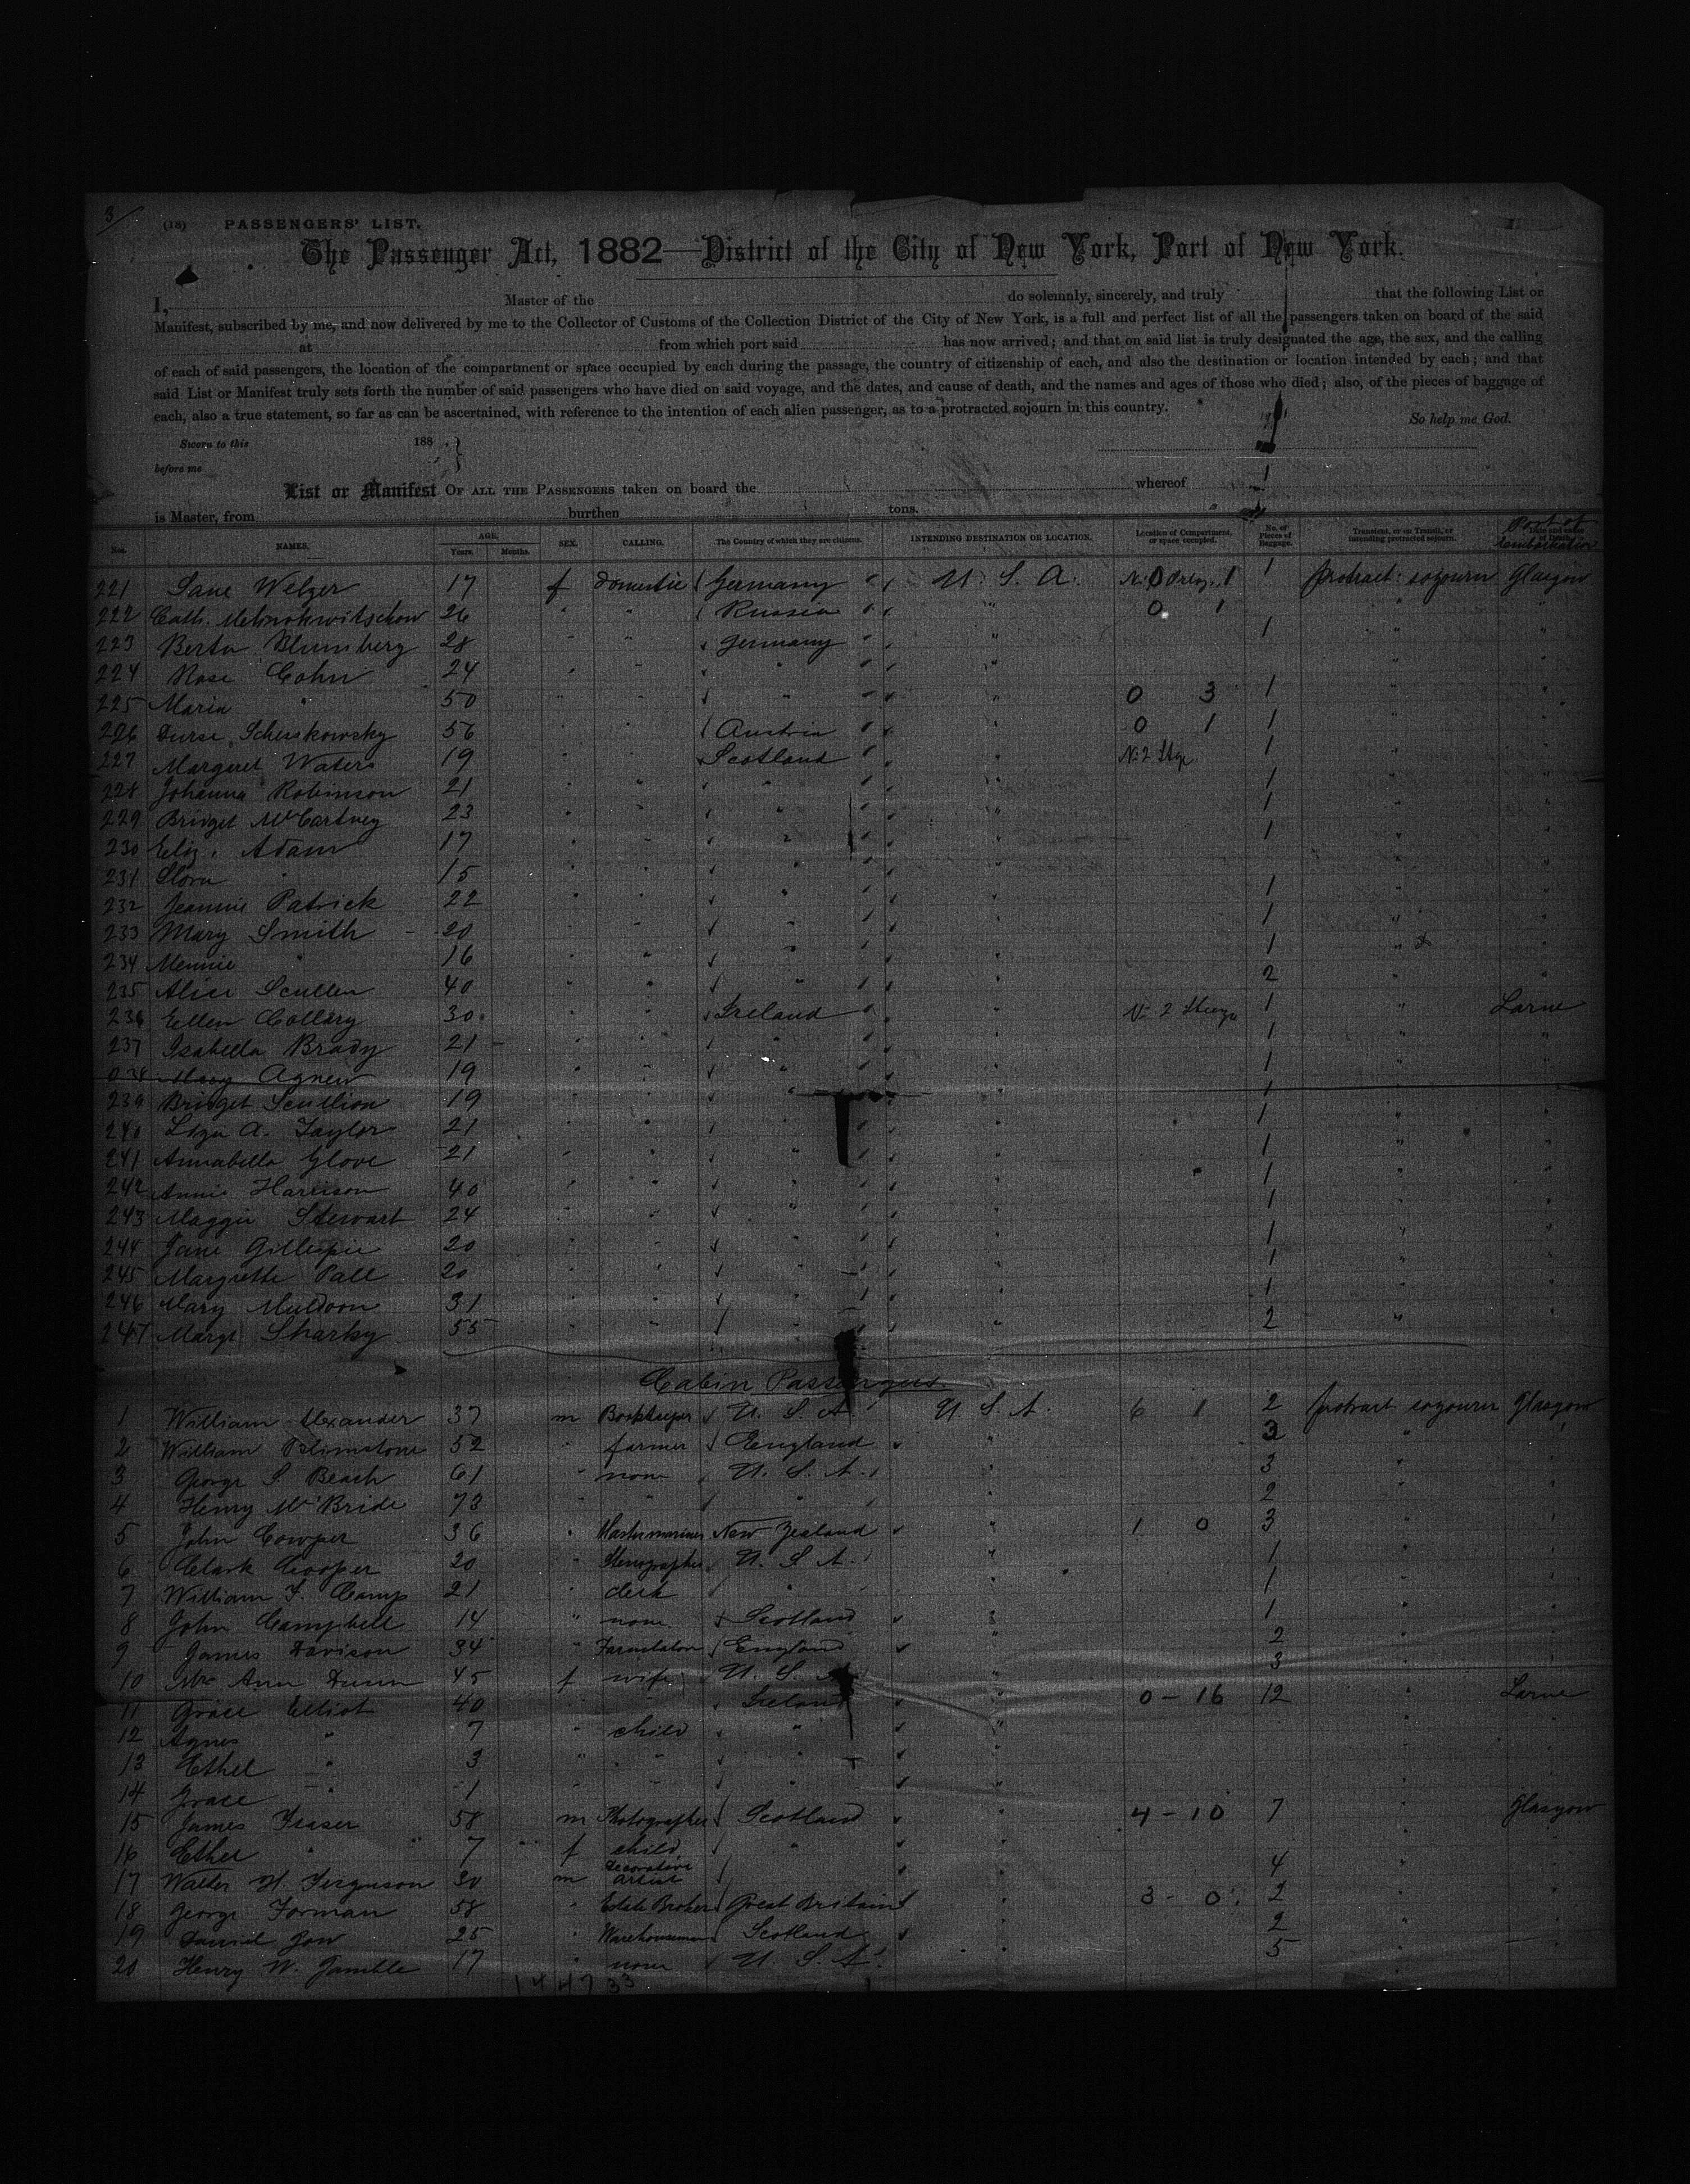 3/
(18) PASSENGERS' LIST.
The Passenger Act, 1882—District of the City of New York, Port of New York.
I, Master of the do solemnly, sincerely, and truly that the following List or
Manifest, subscribed by me, and now delivered by me to the Collector of Customs of the Collection District of the City of New York, is a full and perfect list of all the passengers taken on board of the said
at from which port said has now arrived; and that on said list is truly designated the age, the sex, and the calling
of each of said passengers, the location of the compartment or space occupied by each during the passage, the country of citizenship of each, and also the destination or location intended by each; and that
said List or Manifest truly sets forth the number of said passengers who have died on said voyage, and the dates, and cause of death, and the names and ages of those who died; also, of the pieces of baggage of
each, also a true statement, so far as can be ascertained, with reference to the intention of each alien passenger, as to a protracted sojourn in this country.
So help me God.
Sworn to this 188
before me
List or Manifest OF ALL THE PASSENGERS taken on board the whereof
is Master, from burthen tons.
Nos. NAMES. AGE. Years. Months. SEX. CALLING. The Country of which they are citizens. INTENDING DESTINATION OR LOCATION. Location of Compartment, or space occupied. No. of Pieces of Baggage. Transient, or in Transit, or intending protracted sojourn. Port of Embarkation
221 Welzer 17 f domestic Germany U. S. A. 1 protract: sojourn Glasgow
222 Cath. 26 " " Russia " 0 1 " "
223 Berta Blumberg 28 " " Germany " 1 " "
224 Rose Cohn 24 " " " " " "
225 Maria " 50 " " " " 0 3 1 " "
226 Scherskowsky 56 " " Austria " 0 1 1 " "
227 Margaret Waters 19 " " Scotland " No 2 Stge 1 " "
228 Johanna Robinson 21 " " " " 1 " "
229 Bridget McCartney 23 " " " " 1 " "
230 Eliz. Adam 17 " " " " 1 " "
231 " 15 " " " " " "
232 Jeannie Patrick 22 " " " " 1 " "
233 Mary Smith 20 " " " " 1 " "
234 " 16 " " " " 1 " "
235 Alice Scullen 40 " " " " 2 " "
236 Ellen Collary 30 " " Ireland " No 2 Steerge 1 " Larne
237 Isabella Brady 21 " " " " 1 " "
238 Mary Agnew 19 " " " " 1 " "
239 Bridget Scullion 19 " " " " 1 " "
240 Liza A. Taylor 21 " " " " 1 " "
241 Annabella Glove 21 " " " " 1 " "
242 Annie Harrison 40 " " " " 1 " "
243 Maggie Stewart 24 " " " " 1 " "
244 Jane Gillespie 20 " " " " 1 " "
245 Margrette Pall 20 " " " " 1 " "
246 Mary Muldoon 31 " " " " 1 " "
247 Margt Sharky 55 " " " " 2 " "
Cabin Passengers
1 William Alexander 37 m Bookkeeper U. S. A. U. S. A. 6 1 2 protract sojourn Glasgow
2 William 52 " farmer England " 3 " "
3 George S. Beach 61 " none U. S. A. " 3 " "
4 Henry McBride 73 " " " " 2 " "
5 John Cowper 36 " Master mariner New Zealand " 1 0 3 " "
6 Clark Cooper 20 " Stenographer U. S. A. " 1 " "
7 William F. Camp 21 " clerk " " 1 " "
8 John Campbell 14 " none Scotland " 1 " "
9 James Davison 34 " England " 2 " "
10 Mrs Ann Dunn 45 f wife U. S. A. " 3 " "
11 Grace Elliot 40 " " Ireland " 0 - 16 12 " Larne
12 Agnes " 7 " child " " " "
13 Ethel " 3 " " " " " "
14 Grace " 1 " " " " " "
15 James Fraser 58 m Photographer Scotland " 4 - 10 7 " Glasgow
16 Ethel " 7 f child " " " "
17 Walter H. Ferguson 30 m decorative artist " 4 " "
18 George Forman 58 " Estate Broker Great Britain " 3 - 0 2 " "
19 Daniel Gow 25 " Warehouseman Scotland " 2 " "
20 Henry W. Gamble 17 " none U. S. A. " 5 " "